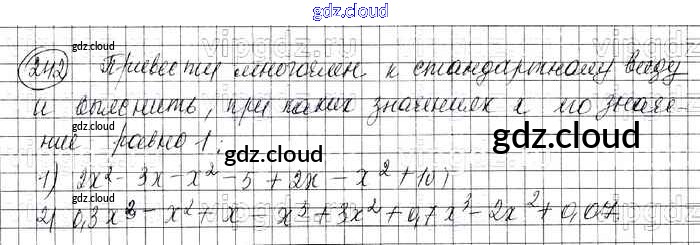 gdz.cloud
242 Привести многочлен к стандартному виду
и выяснить, при каких значениях x его значе-
ние равно 1:
gdz.cloud
gdz.cloud
gdz.cloud
gdz.cloud
1) 2x² - 3x - x² - 5 + 2x - x² + 10;
2) 0,3x³ - x² + x - x³ + 3x² + 0,7x³ - 2x² + 0,07.
gdz.cloud
gdz.cloud
gdz.cloud